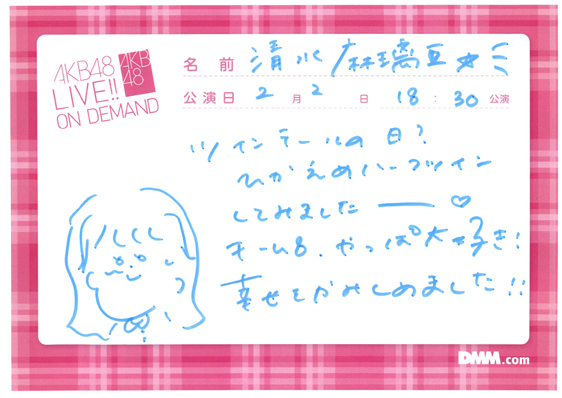 AKB48
LIVE!!
ON DEMAND
AKB
48
名前 清水麻璃亜☆ミ
公演日 2月2日 18:30公演
ツインテールの日?
ひかえめハーフツイン
してみました ー ♡
チーム8、やっぱ大好き!
幸せをかみしめました!!
DMM.com